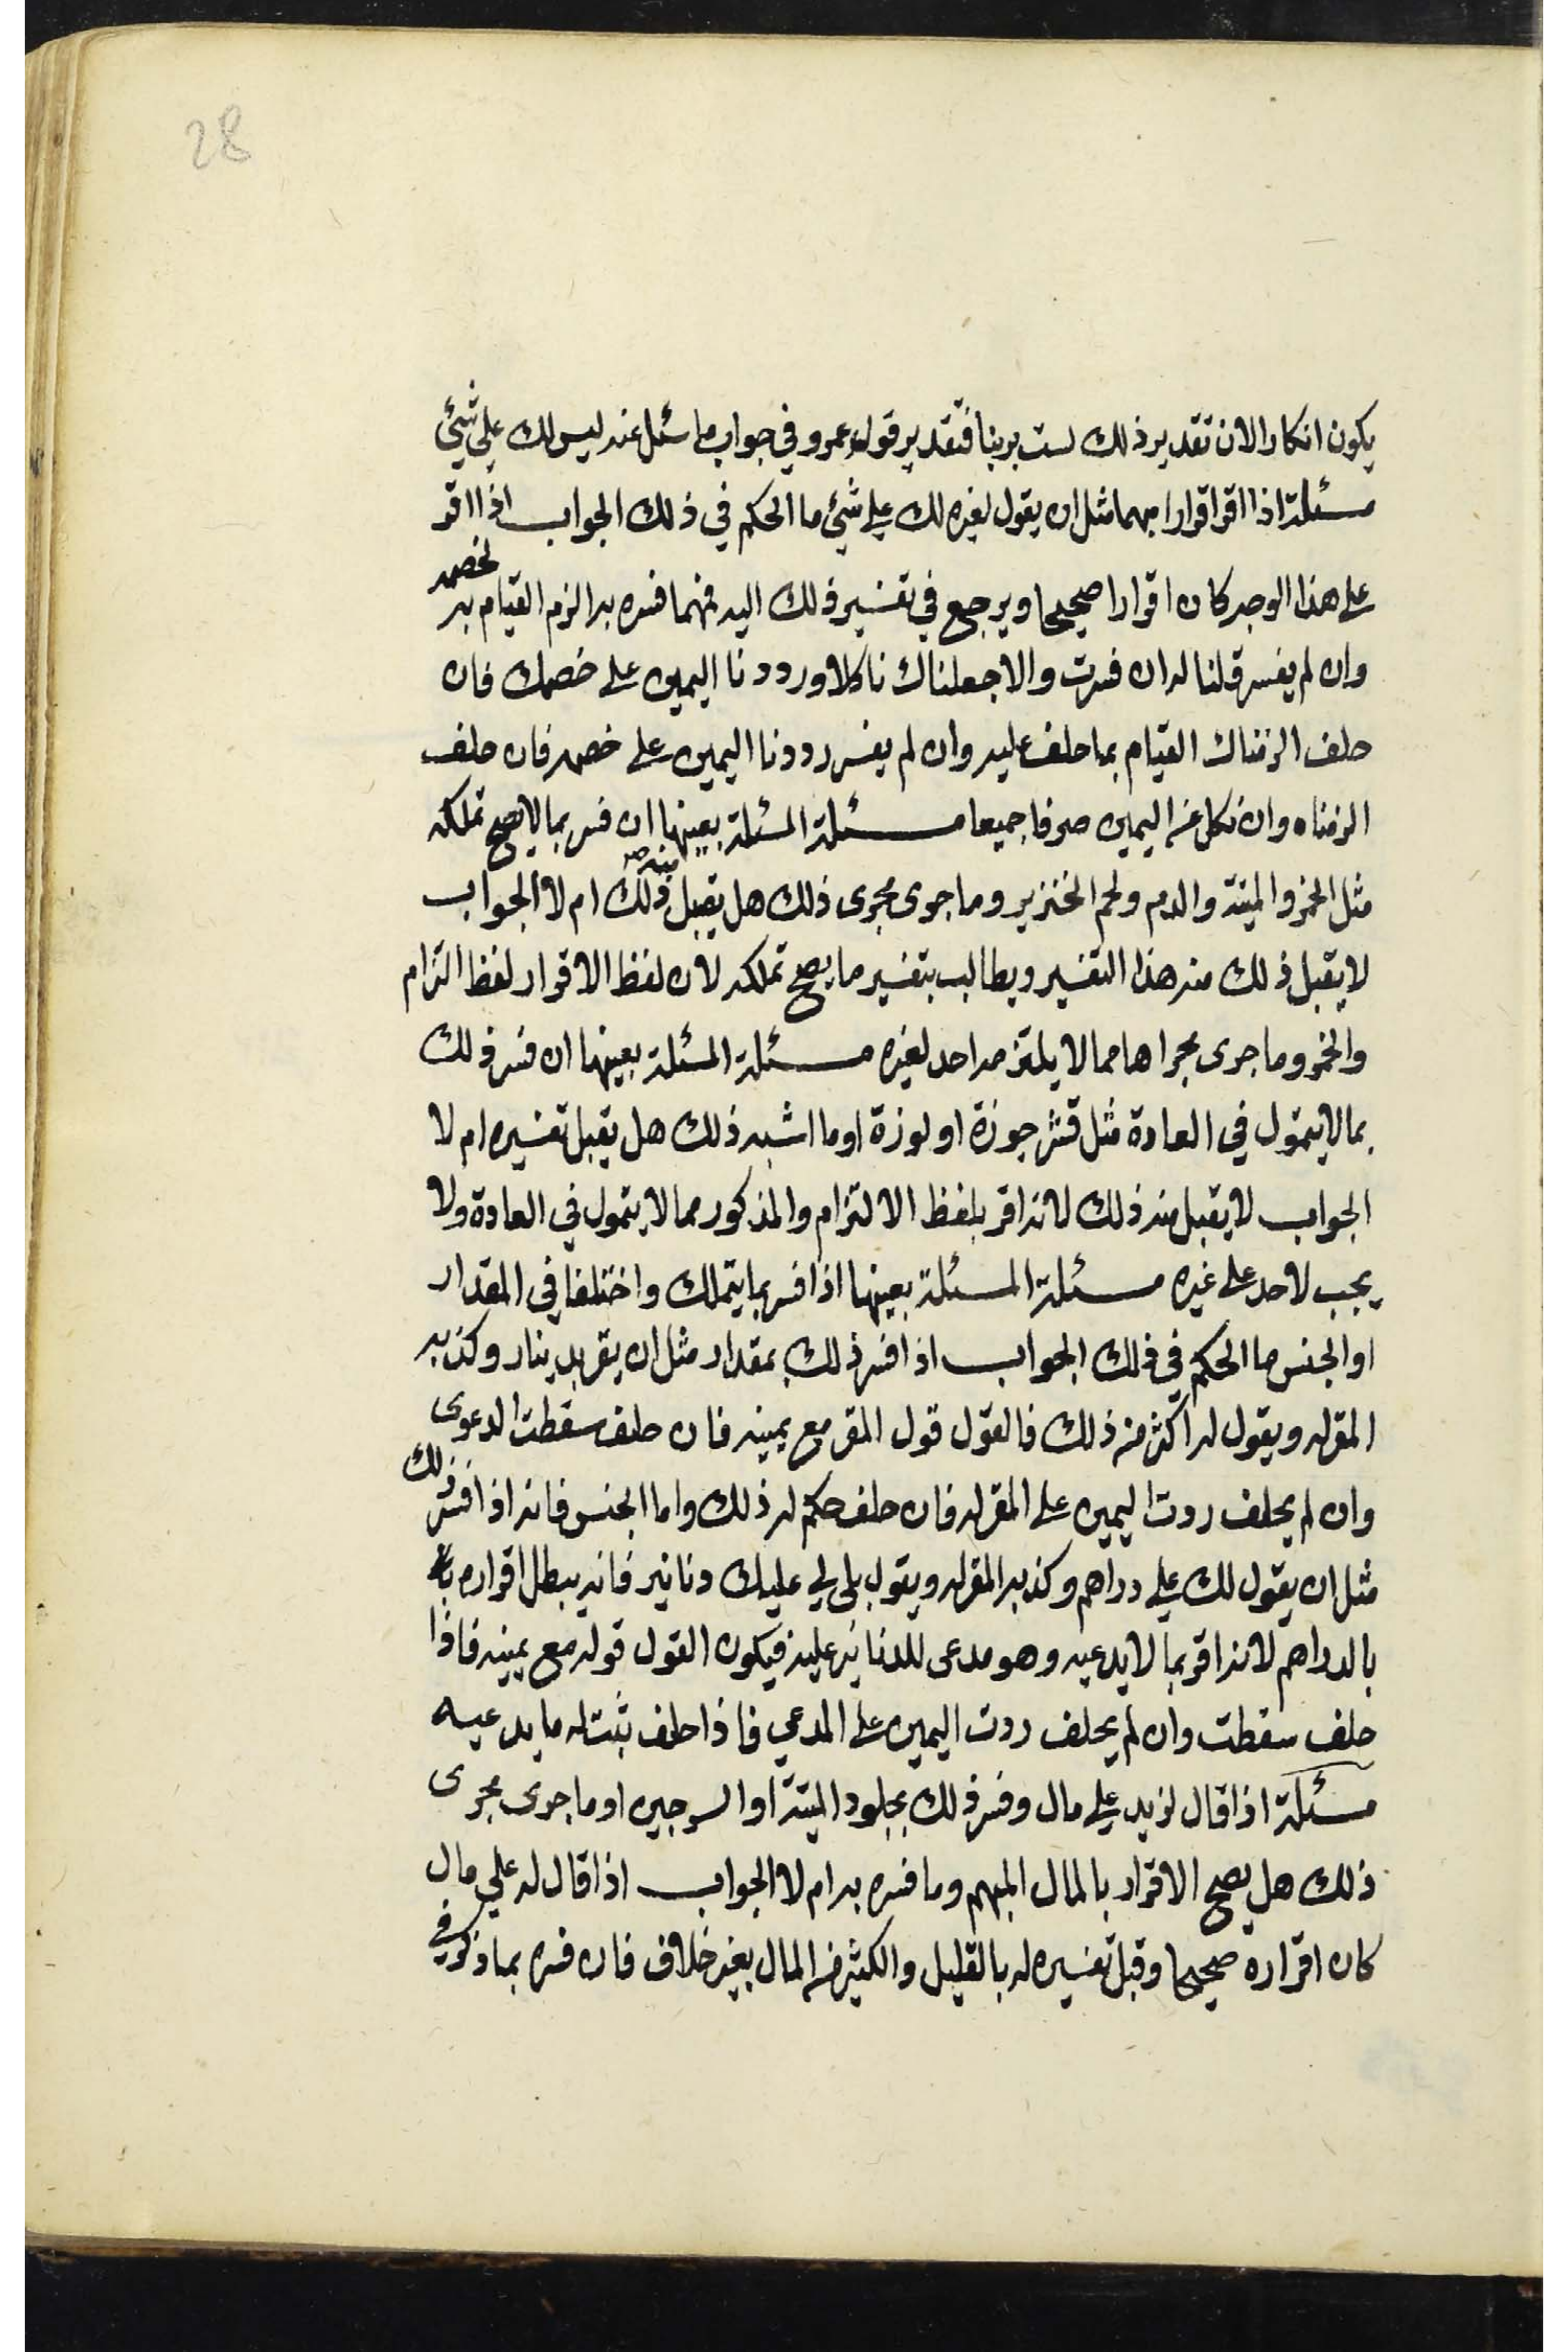 28
يكون انكارا لان تقدير ذلك لست بريئا فتقدير قول عمرو في جواب ما سئل عنه ليس لك علي شئ
مسئلة اذا اقر اقرارا مبهما مثل ان يقول لغيره لك علي شئ ما الحكم في ذلك الجواب اذا اقر
على هذا الوجه كان اقرارا صحيحا ويرجع في تفسير ذلك اليه فمهما فسره به الزم القيام به لخصمه
وان لم يفسر قلنا له ان فسرت والا جعلناك ناكلا ورددنا اليمين على خصمك فان
حلف الزمناك القيام بما حلف عليه وان لم يفسر رددنا اليمين على خصمه فان حلف
الزمناه وان نكل عن اليمين صرفا جميعا مسئلة المسئلة بعينها ان فسر بما لا يصح تملكه
مثل الخمر والميتة والدم ولحم الخنزير وما جرى مجرى ذلك هل يقبل منه ذلك ام لا الجواب
لا يقبل ذلك منه هذا التفسير ويطالب بتفسير ما يصح تملكه لان لفظ الاقرار لفظ التزام
والخمر وما جرى مجراها مما لا يلتزمه احد لغيره مسئلة المسئلة بعينها ان فسر ذلك
بما لا يتمول في العادة مثل قشر جوزة او لوزة او ما اشبه ذلك هل يقبل تفسيره ام لا
الجواب لا يقبل منه ذلك لانه اقر بلفظ الالتزام والمذكور مما لا يتمول في العادة ولا
يجب لاحد على غيره مسئلة المسئلة بعينها اذا فسر بما يتملك واختلفا في المقدار
او الجنس ما الحكم في ذلك الجواب اذا فسر ذلك بمقدار مثل ان يقر بدينار وكذبه
المقر له ويقول له اكثر من ذلك فالقول قول المقر مع يمينه فان حلف سقطت الدعوى
وان لم يحلف ردت اليمين على المقر له فان حلف حكم له ذلك واما الجنس فانه اذا فسر ذلك
مثل ان يقول لك علي دراهم وكذبه المقر له ويقول بلى لي عليك دنانير فانه يبطل اقراره
بالدراهم لانه اقر بما لا يدعيه وهو مدعى للدنانير عليه فيكون القول قوله مع يمينه فاذا
حلف سقطت وان لم يحلف ردت اليمين على المدعي فاذا حلف ثبت له ما يدعيه
مسئلة اذا قال لزيد علي مال وفسر ذلك بجلود الميتة او السرجين او ما جرى مجرى
ذلك هل يصح الاقرار بالمال المبهم وما فسره به ام لا الجواب اذا قال له علي مال
كان اقراره صحيحا وقبل تفسيره له بالقليل والكثير من المال بغير خلاف فان فسره بما ذكر في